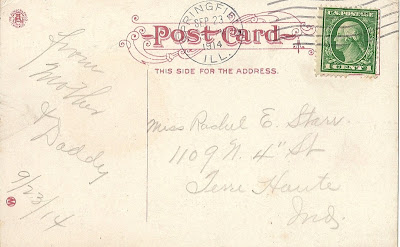 SPRINGFIELD
SEP 23
1914
ILL.
Post Card
THIS SIDE FOR THE ADDRESS.
U.S. POSTAGE
1 CENT 1
from
Mother
& Daddy
9/23/14
Miss Rachel E. Starr.
1109 N. 4" St
Terre Haute
Ind.